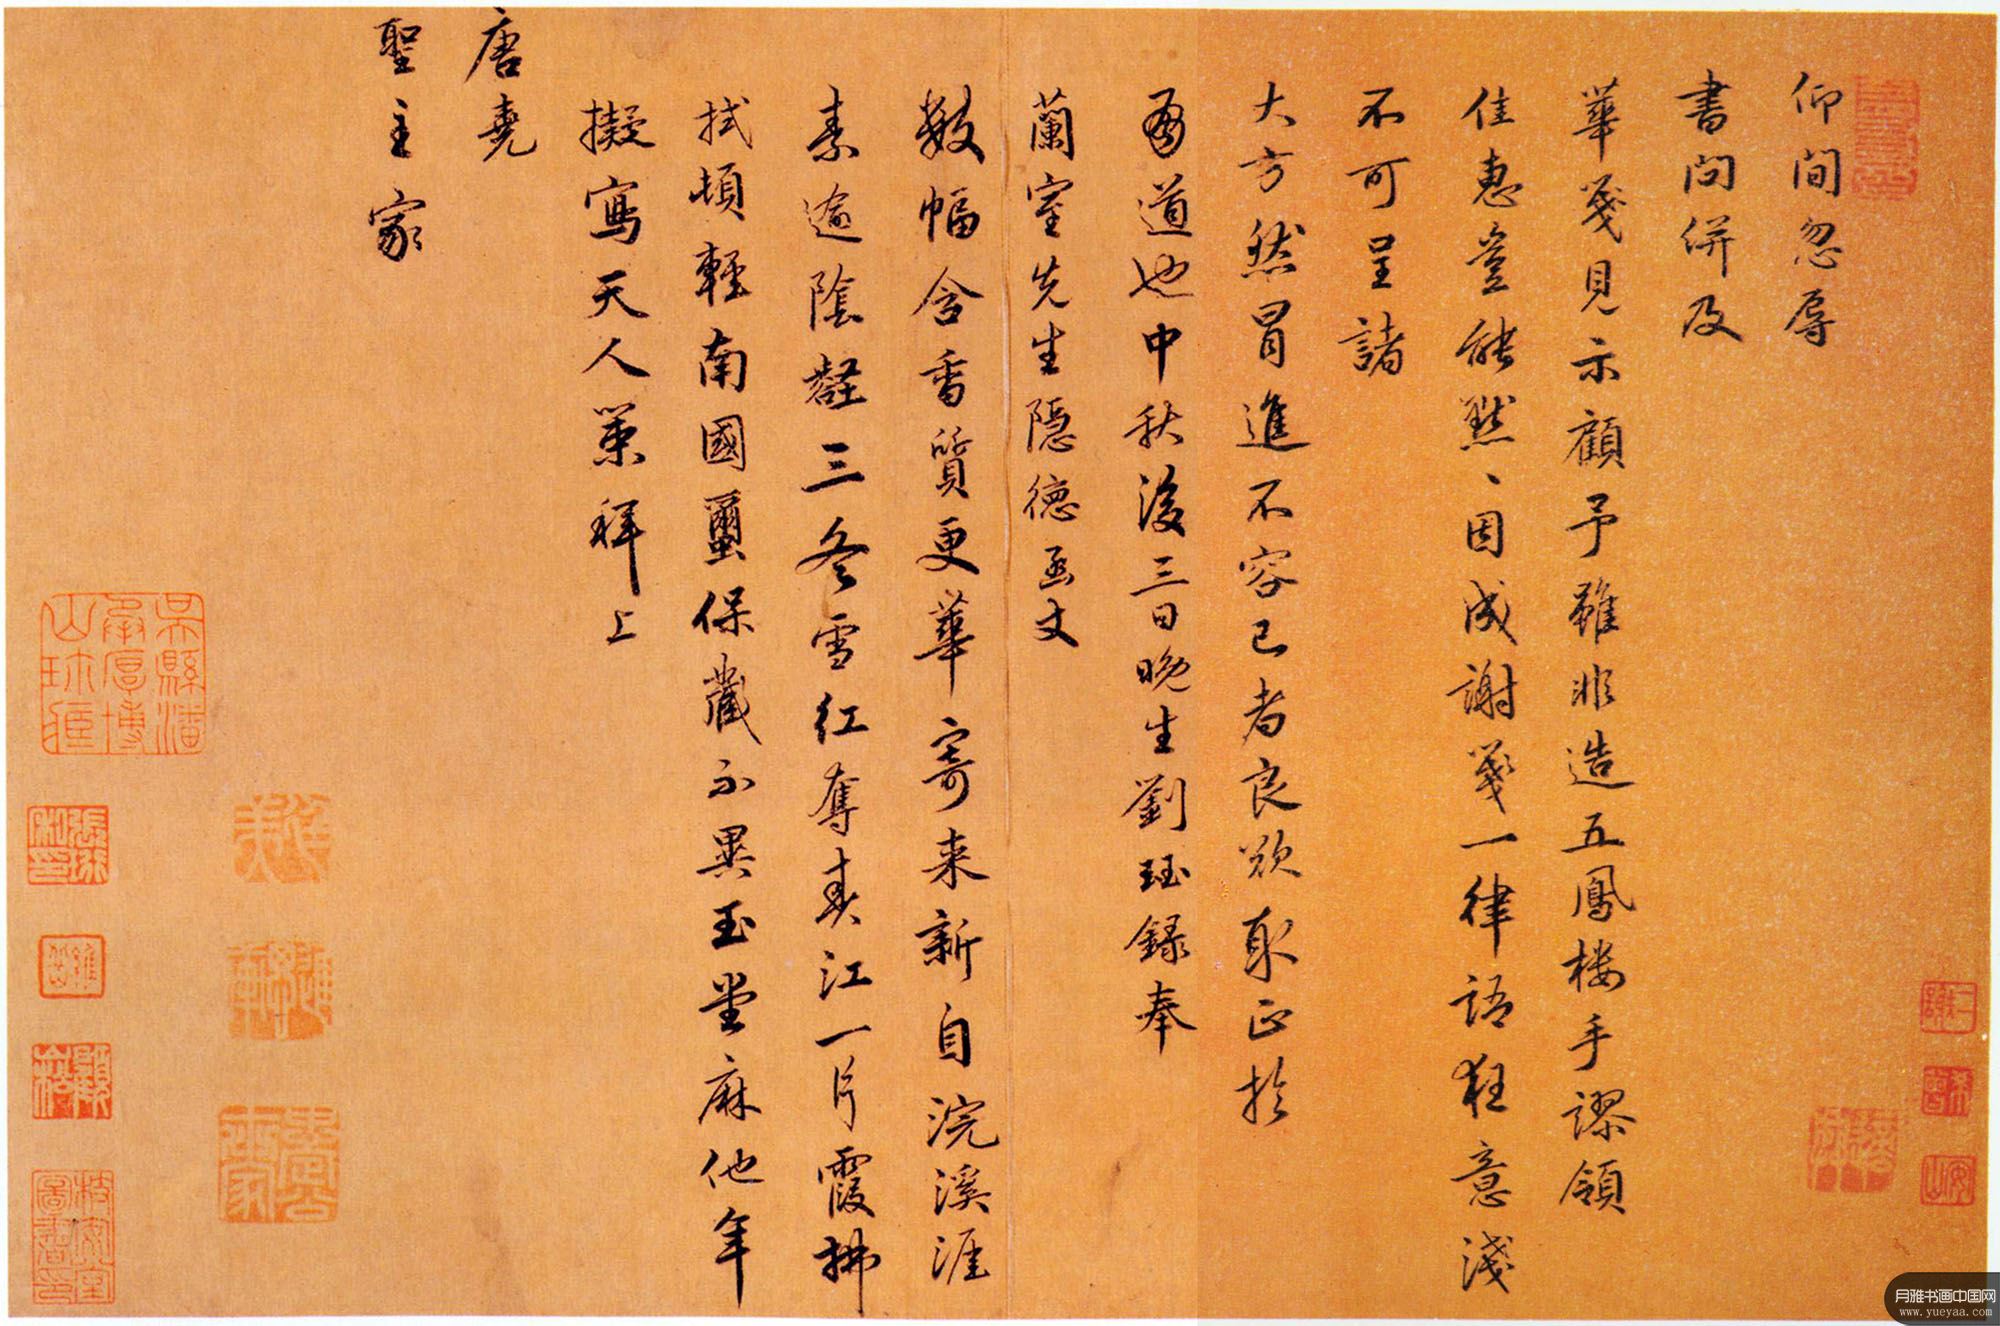 仰間忽辱
書問併及
華箋見示顧予雖非造五鳳樓手謬領
佳惠豈能默、因成謝箋一律語狂意淺
不可呈諸
大方然冒進不容已者良欲取正於
有道也中秋後三日晚生劉珏錄奉
蘭室先生隱德函丈
數幅含香質更華寄来新自浣溪涯
素逾陰壑三冬雪紅奪春江一片霞拂
拭頓輕南國蠒保藏不異玉堂麻他年
擬寫天人策拜上
唐堯
聖主家
吳縣潘
承厚博
山珍護
月雅书画中国网
www.yueyaa.com